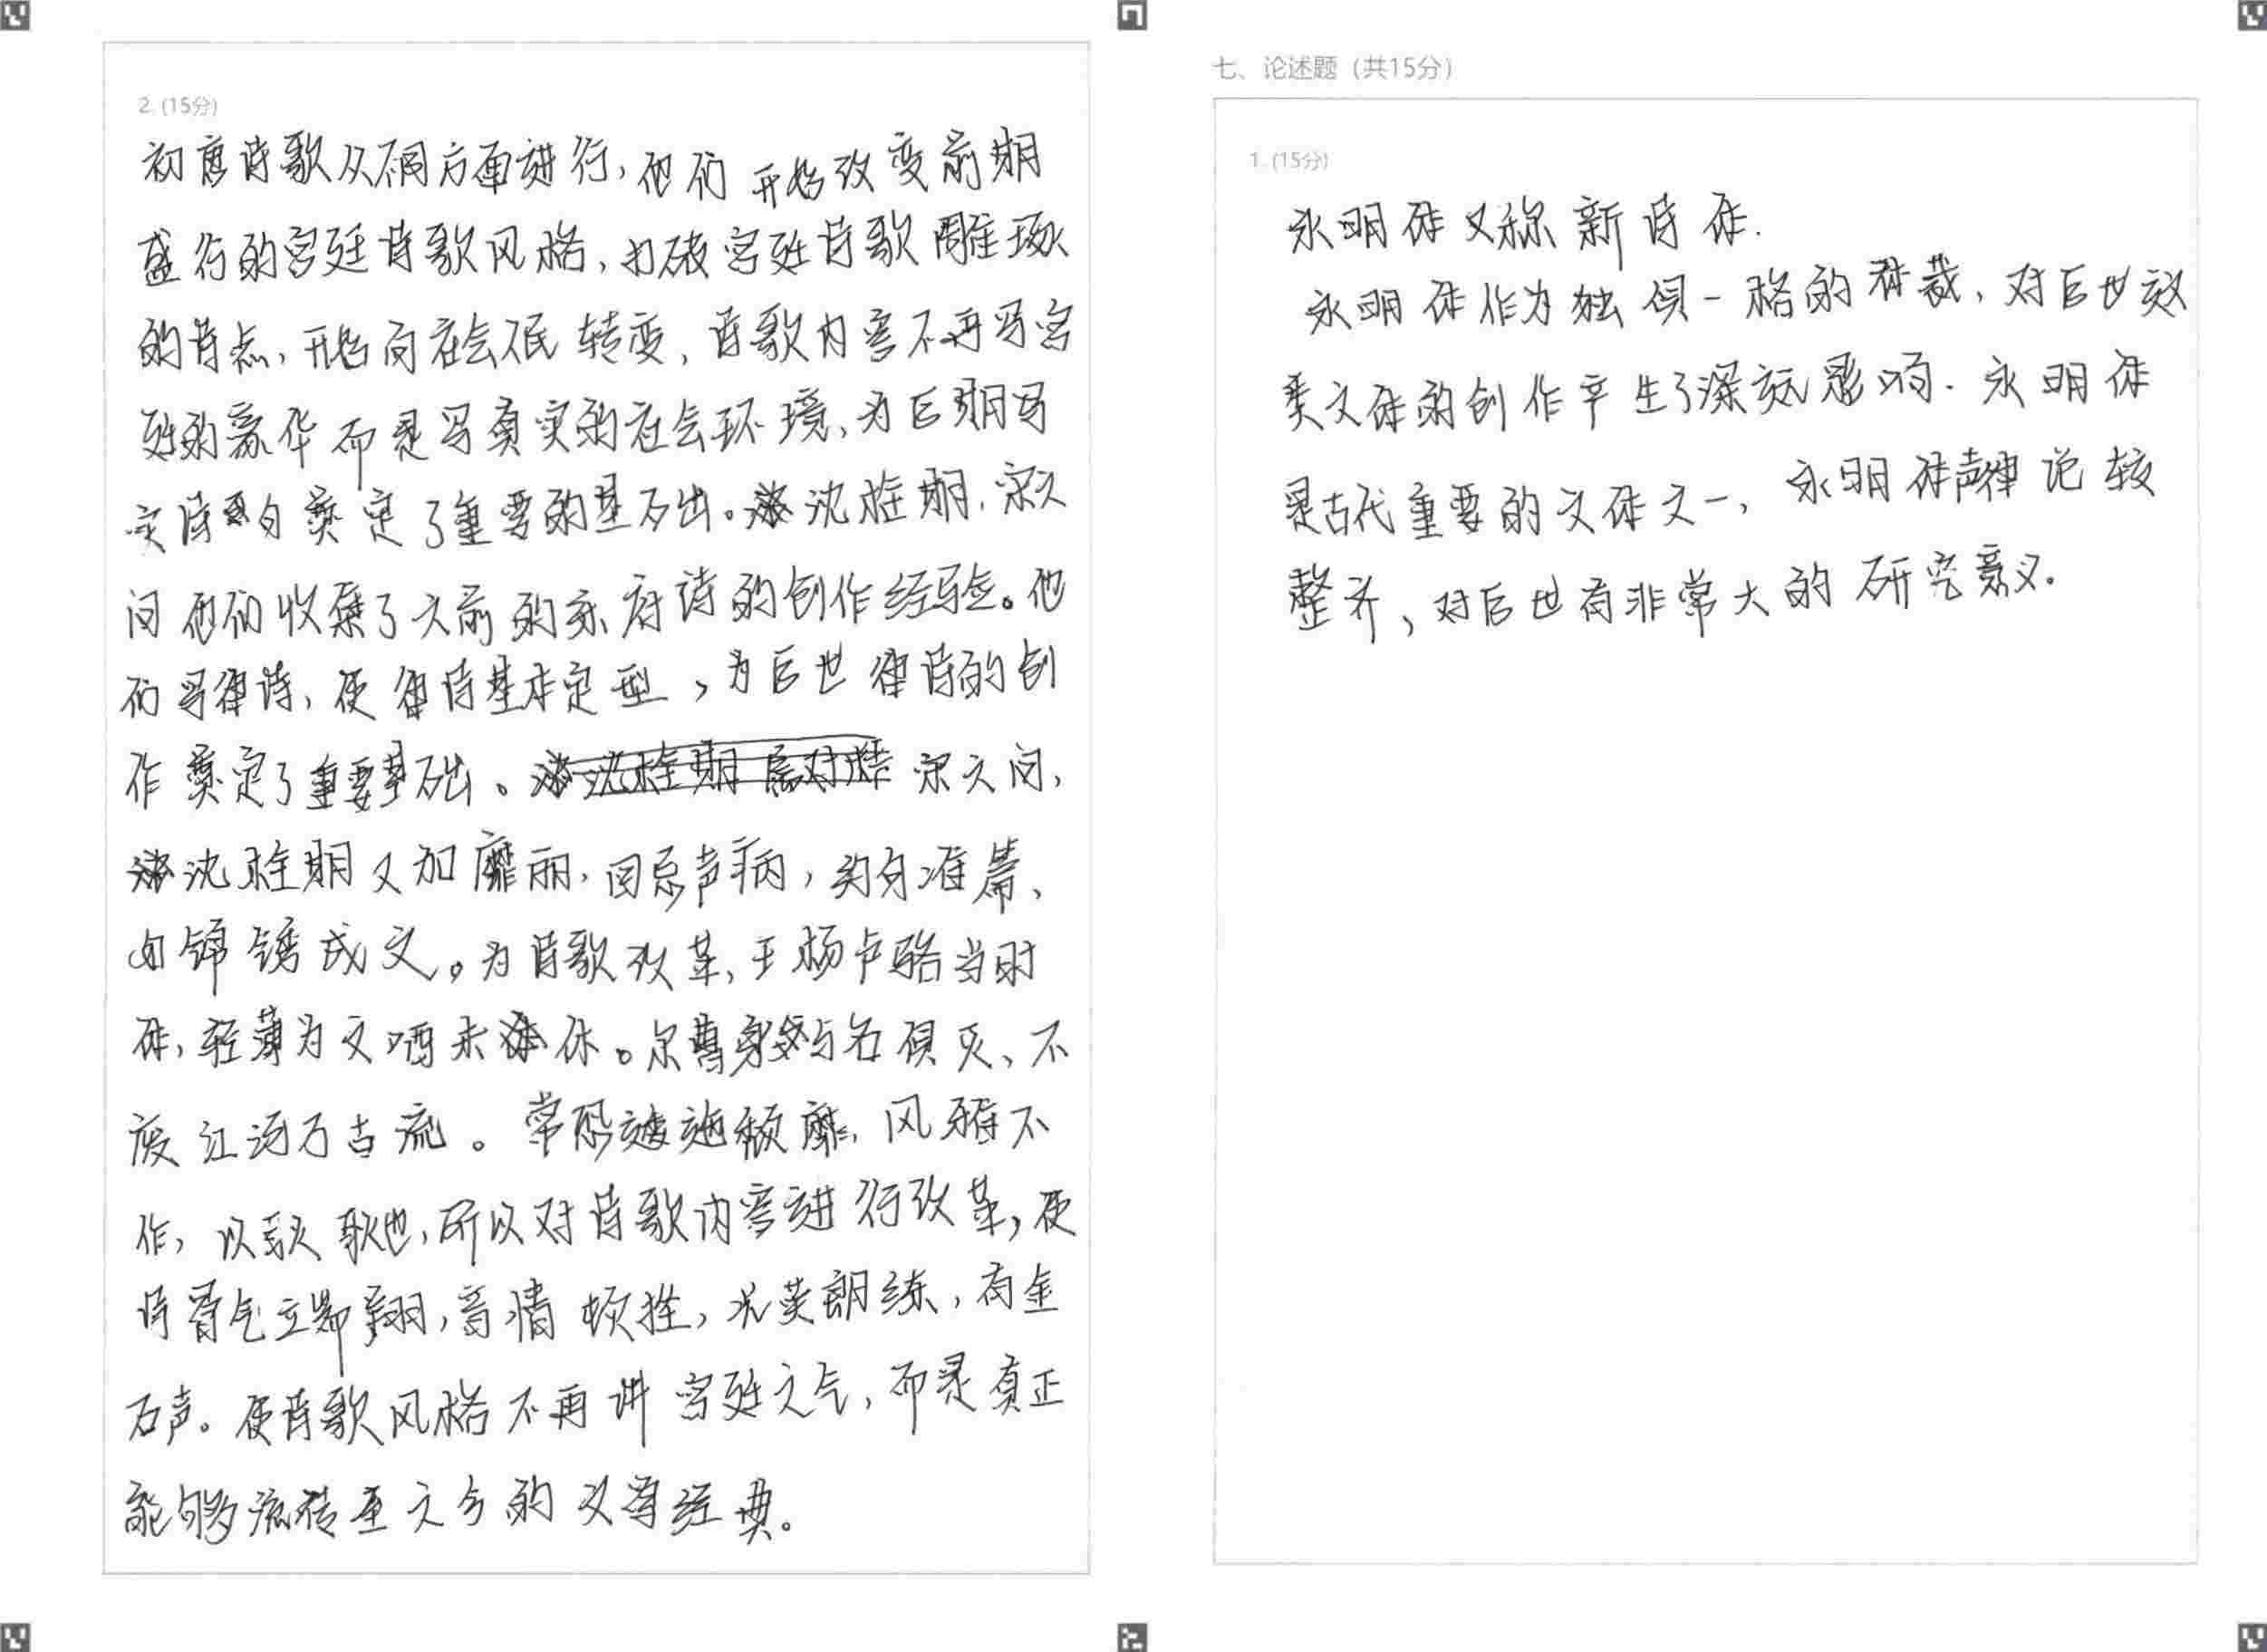 2. (15分)
初唐诗歌从不同方面进行,他们开始改变前期
盛行的宫廷诗歌风格,打破宫廷诗歌雕琢
的特点,开始向社会人民转变,诗歌内容不再写宫
廷的豪华而是写真实的社会环境,为后期写
实诗的奠定了重要的基础。沈佺期,宋之
问他们收集了之前的乐府诗的创作经验。他
们写律诗,使律诗基本定型,为后世律诗的创
作奠定了重要基础。宋之问,
沈佺期又加靡丽,回忌声病,约句准篇,
如锦绣成文。为诗歌改革,王杨卢骆当时
体,轻薄为文哂未休。尔曹身与名俱灭,不
废江河万古流。常恐逶迤颓靡,风雅不
作,以耿耿也,所以对诗歌内容进行改革,使
诗骨气端翔,音情顿挫,光英朗练,有金
石声。使诗歌风格不再讲宫廷之气,而是真正
能够流传至之今的文学经典。
七、论述题 (共15分)
1. (15分)
永明体又称新诗体.
永明体作为独具一格的体裁,对后世这
类文体的创作产生了深刻影响.永明体
是古代重要的文体之一,永明体声律论较
整齐,对后世有非常大的研究意义。